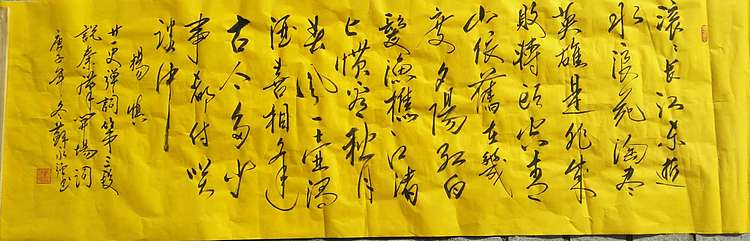 滚〻长江东逝
水浪花淘尽
英雄是非成
败转头空青
山依舊在幾
度夕陽红白
髮漁樵江渚
上惯看秋月
春风一壶濁
酒喜相逢
古今多少
事都付笑
谈中
楊慎
廿一史弹词第三段
説秦漢開場词
庚子年冬蘇书